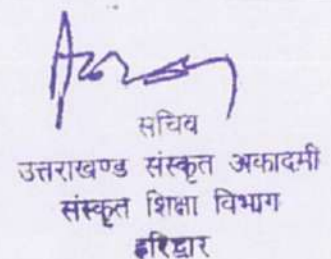 सचिव
उत्तराखण्ड संस्कृत अकादमी
संस्कृत शिक्षा विभाग
हरिद्वार